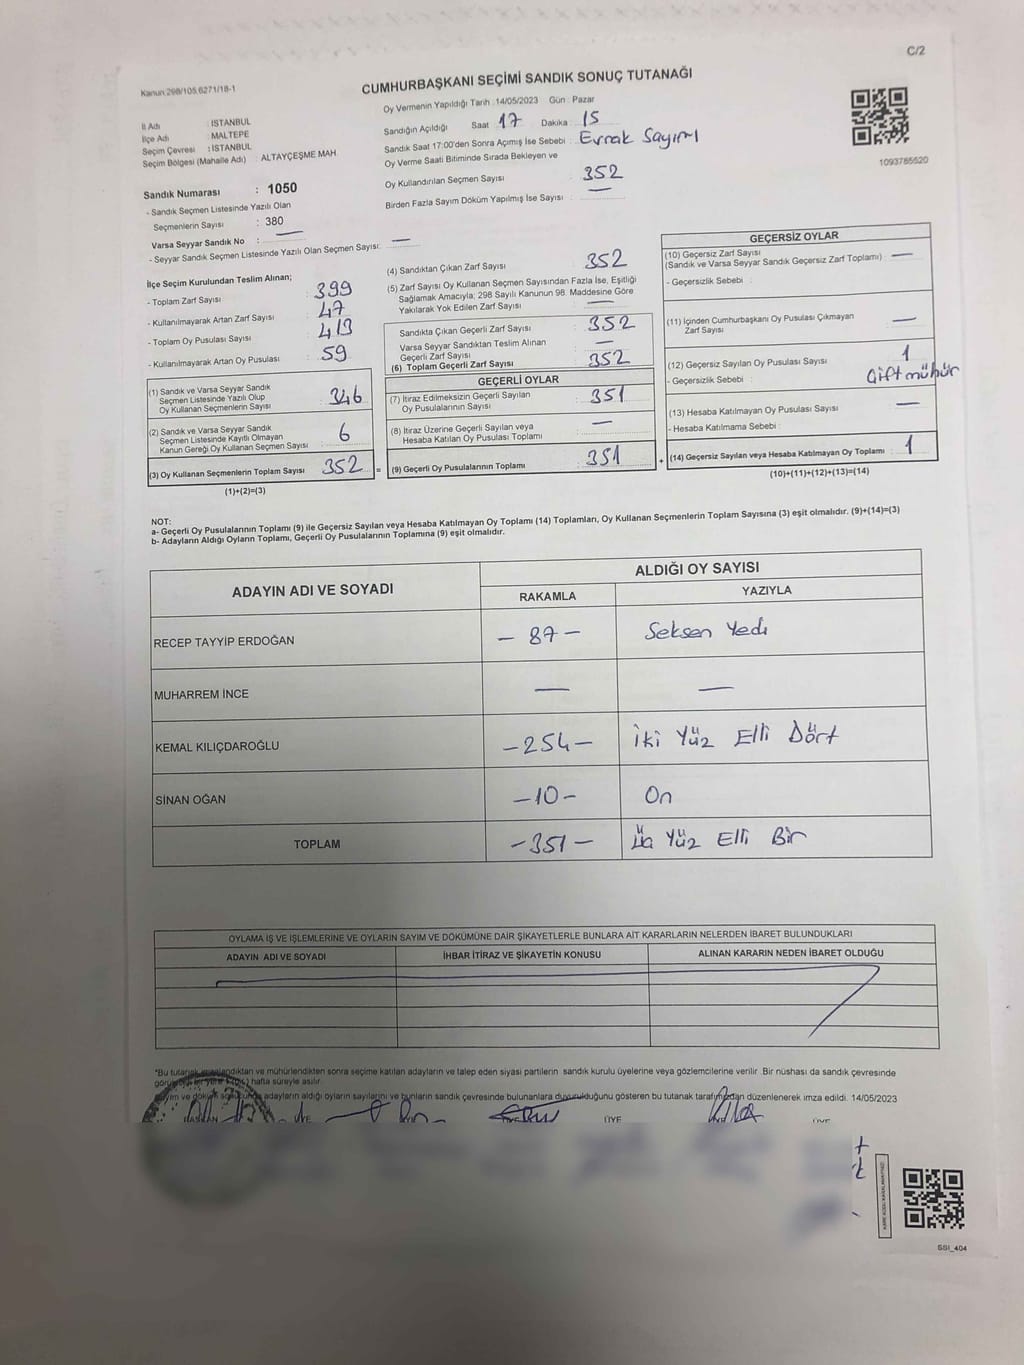 C/2
Kanun:298/105,6271/18-1
CUMHURBAŞKANI SEÇİMİ SANDIK SONUÇ TUTANAĞI
Oy Vermenin Yapıldığı Tarih : 14/05/2023 Gün : Pazar
İl Adı : İSTANBUL
İlçe Adı : MALTEPE
Seçim Çevresi : İSTANBUL
Seçim Bölgesi (Mahalle Adı) : ALTAYÇEŞME MAH
Sandığın Açıldığı Saat 17 Dakika : 15
Sandık Saat 17:00'den Sonra Açımış Ise Sebebi : Evrak Sayımı
Oy Verme Saati Bitiminde Sırada Bekleyen ve
Oy Kullandırılan Seçmen Sayısı : 352
Birden Fazla Sayım Döküm Yapılmış Ise Sayısı : —
1093785520
Sandık Numarası : 1050
- Sandık Seçmen Listesinde Yazılı Olan
Seçmenlerin Sayısı : 380
Varsa Seyyar Sandık No : —
- Seyyar Sandık Seçmen Listesinde Yazılı Olan Seçmen Sayısı: —
İlçe Seçim Kurulundan Teslim Alınan;
- Toplam Zarf Sayısı : 399
- Kullanılmayarak Artan Zarf Sayısı : 47
- Toplam Oy Pusulası Sayısı : 413
- Kullanılmayarak Artan Oy Pusulası : 59
(1) Sandık ve Varsa Seyyar Sandık
Seçmen Listesinde Yazılı Olup
Oy Kullanan Seçmenlerin Sayısı : 346
(2) Sandık ve Varsa Seyyar Sandık
Seçmen Listesinde Kayıtlı Olmayan
Kanun Gereği Oy Kullanan Seçmen Sayısı : 6
(3) Oy Kullanan Seçmenlerin Toplam Sayısı : 352 =
(1)+(2)=(3)
(4) Sandıktan Çıkan Zarf Sayısı : 352
(5) Zarf Sayısı Oy Kullanan Seçmen Sayısından Fazla İse, Eşitliği
Sağlamak Amacıyla; 298 Sayılı Kanunun 98. Maddesine Göre
Yakılarak Yok Edilen Zarf Sayısı : —
Sandıkta Çıkan Geçerli Zarf Sayısı : 352
Varsa Seyyar Sandıktan Teslim Alınan
Geçerli Zarf Sayısı : —
(6) Toplam Geçerli Zarf Sayısı : 352
GEÇERLİ OYLAR
(7) İtiraz Edilmeksizin Geçerli Sayılan
Oy Pusulalarının Sayısı : 351
(8) İtiraz Üzerine Geçerli Sayılan veya
Hesaba Katılan Oy Pusulası Toplamı : —
(9) Geçerli Oy Pusulalarının Toplamı : 351 +
GEÇERSİZ OYLAR
(10) Geçersiz Zarf Sayısı
(Sandık ve Varsa Seyyar Sandık Geçersiz Zarf Toplamı) : —
- Geçersizlik Sebebi :
(11) İçinden Cumhurbaşkanı Oy Pusulası Çıkmayan
Zarf Sayısı : —
(12) Geçersiz Sayılan Oy Pusulası Sayısı : 1
- Geçersizlik Sebebi : Çift mühür
(13) Hesaba Katılmayan Oy Pusulası Sayısı : —
- Hesaba Katılmama Sebebi :
(14) Geçersiz Sayılan veya Hesaba Katılmayan Oy Toplamı : 1
(10)+(11)+(12)+(13)=(14)
NOT:
a- Geçerli Oy Pusulalarının Toplamı (9) ile Geçersiz Sayılan veya Hesaba Katılmayan Oy Toplamı (14) Toplamları, Oy Kullanan Seçmenlerin Toplam Sayısına (3) eşit olmalıdır. (9)+(14)=(3)
b- Adayların Aldığı Oyların Toplamı, Geçerli Oy Pusulalarının Toplamına (9) eşit olmalıdır.
ADAYIN ADI VE SOYADI ALDIĞI OY SAYISI
RAKAMLA YAZIYLA
RECEP TAYYİP ERDOĞAN - 87 - Seksen Yedi
MUHARREM İNCE — —
KEMAL KILIÇDAROĞLU - 254 - İki Yüz Elli Dört
SİNAN OĞAN - 10 - On
TOPLAM - 351 - Üç Yüz Elli Bir
OYLAMA İŞ VE İŞLEMLERİNE VE OYLARIN SAYIM VE DÖKÜMÜNE DAİR ŞİKAYETLERLE BUNLARA AİT KARARLARIN NELERDEN İBARET BULUNDUKLARI
ADAYIN ADI VE SOYADI İHBAR İTİRAZ VE ŞİKAYETİN KONUSU ALINAN KARARIN NEDEN İBARET OLDUĞU
*Bu tutanak ve mühürlendikten sonra seçime katılan adayların ve talep eden siyasi partilerin sandık kurulu üyelerine veya gözlemcilerine verilir .Bir nüshası da sandık çevresinde
hafta süreyle asılır.
Sayım ve döküm adayların aldığı oyların sayılarını ve bunların sandık çevresinde bulunanlara duyurulduğunu gösteren bu tutanak tarafımızdan düzenlenerek imza edildi. 14/05/2023
BAŞKAN ÜYE ÜYE ÜYE ÜYE ÜYE
SSI_404